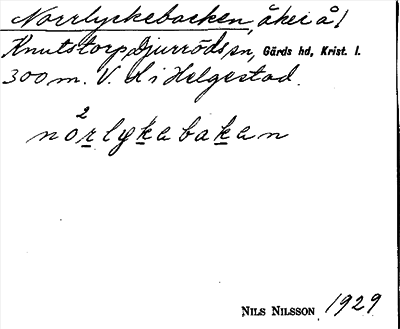 Norrlyckebacken, åker å /
Knutstorp, Djurröds sn, Gärds hd, Krist. l.
300 m. V. d i Helgestad.
2
norlykebaken
NILS NILSSON 1929